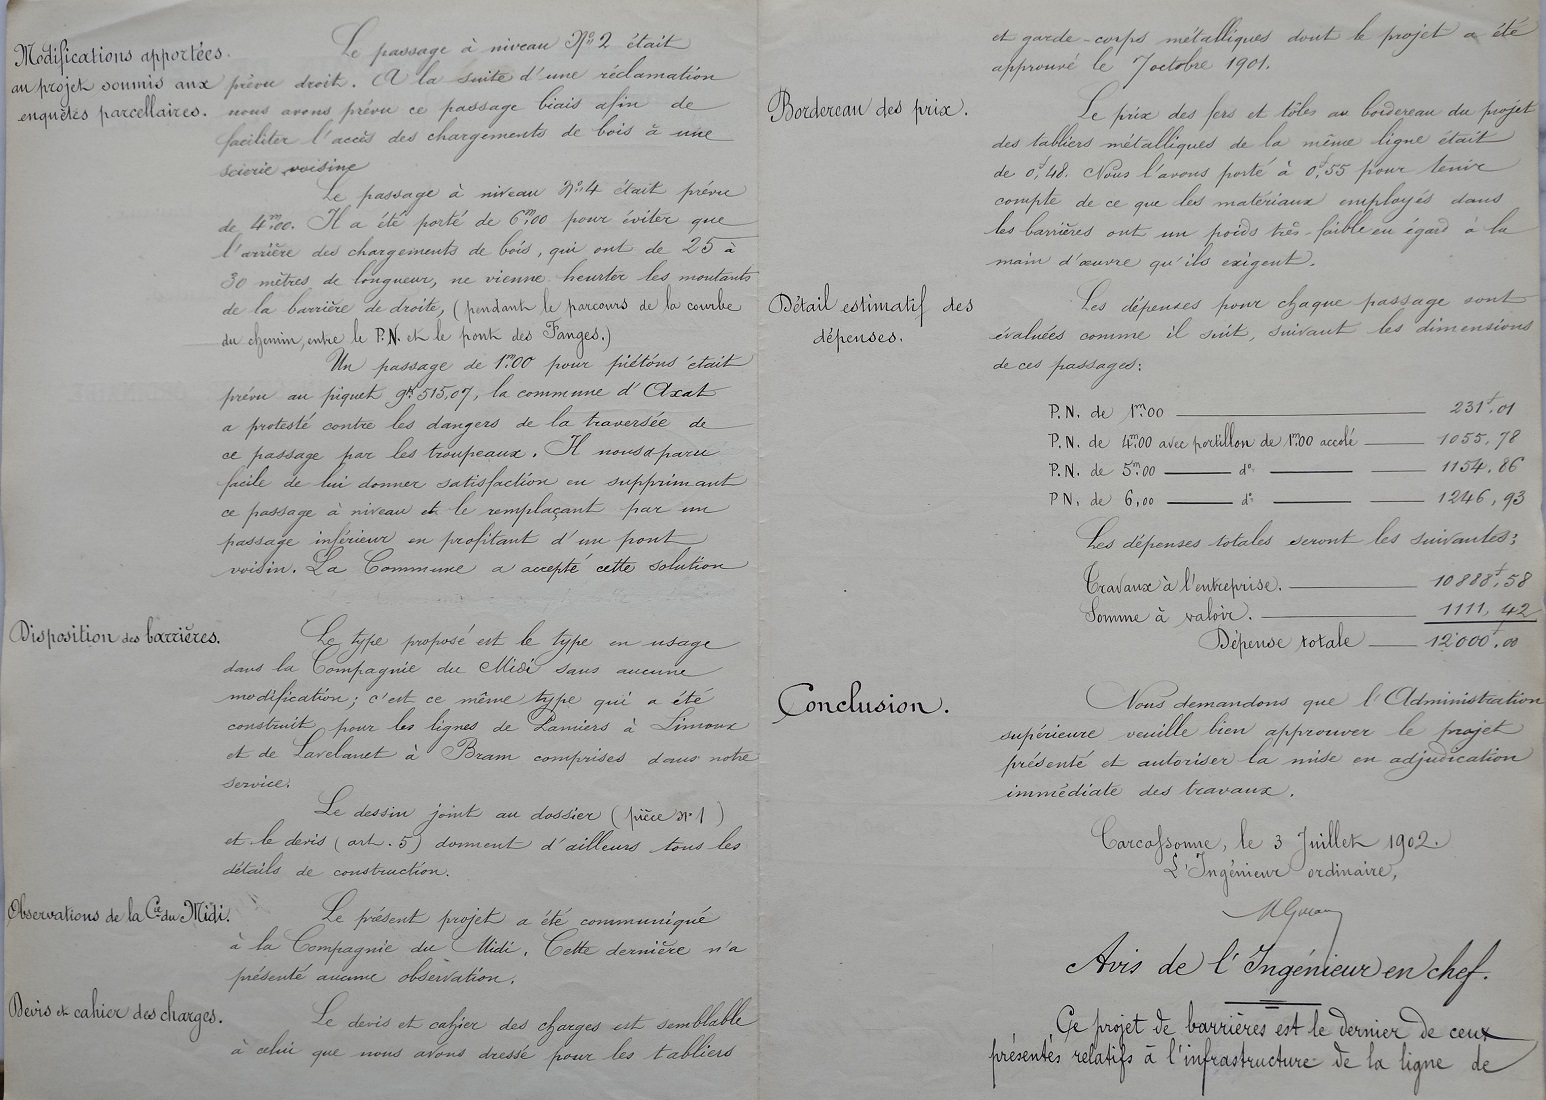 Modifications apportées
au projet soumis aux
enquêtes parcellaires.
Le passage à niveau Nº 2 était
prévu droit. A la suite d'une réclamation
nous avons prévu ce passage biais afin de
faciliter l'accès des chargements de bois à une
scierie voisine
Le passage à niveau Nº 4 était prévu
de 4m,00. Il a été porté de 6m,00 pour éviter que
l'arrière des chargements de bois, qui ont de 25 à
30 mètres de longueur, ne vienne heurter les montants
de la barrière de droite, (pendant le parcours de la courbe
du chemin, entre le P.N. et le pont des Fanges.)
Un passage de 1m,00 pour piétons était
prévu au piquet 9k 515,07, la commune d'Axat
a protesté contre les dangers de la traversée de
ce passage par les troupeaux. Il nous a paru
facile de lui donner satisfaction en supprimant
ce passage à niveau et le remplaçant par un
passage inférieur en profitant d'un pont
voisin. La Commune a accepté cette solution
Disposition des barrières.
Le type proposé est le type en usage
dans la Compagnie du Midi sans aucune
modification; c'est ce même type qui a été
construit pour les lignes de Pamiers à Limoux
et de Lavelanet à Bram comprises dans notre
service.
Le dessin joint au dossier (pièce nº 1)
et le devis (art. 5) donnent d'ailleurs tous les
détails de construction.
Observations de la Cie du Midi.
Le présent projet a été communiqué
à la Compagnie du Midi. Cette dernière n'a
présenté aucune observation.
Devis et cahier des charges.
Le devis et cahier des charges est semblable
à celui que nous avons dressé pour les tabliers
et garde-corps métalliques dont le projet a été
approuvé le 7 octobre 1901.
Bordereau des prix.
Le prix des fers et tôles au bordereau du projet
des tabliers métalliques de la même ligne était
de 0f,48. Nous l'avons porté à 0f,55 pour tenir
compte de ce que les matériaux employés dans
les barrières ont un poids très-faible eu égard à la
main d'œuvre qu'ils exigent.
Détail estimatif des
dépenses.
Les dépenses pour chaque passage sont
évaluées comme il suit, suivant les dimensions
de ces passages:
P.N. de 1m,00 231f,01
P.N. de 4m,00 avec portillon de 1m,00 accolé 1055,78
P.N. de 5m,00 dº 1154,86
P.N. de 6,00 dº 1246,93
Les dépenses totales seront les suivantes:
Travaux à l'entreprise. 10888f,58
Somme à valoir. 1111,42
Dépense totale 12000f,00
Conclusion.
Nous demandons que l'Administration
supérieure veuille bien approuver le projet
présenté et autoriser la mise en adjudication
immédiate des travaux.
Carcassonne, le 3 Juillet 1902.
L'Ingénieur ordinaire,
Avis de l'Ingénieur en chef.
Ce projet de barrières est le dernier de ceux
présentés relatifs à l'infrastructure de la ligne de